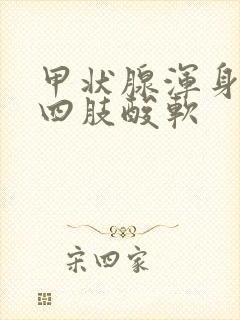 甲状腺渾身
四肢酸軟
宋四家